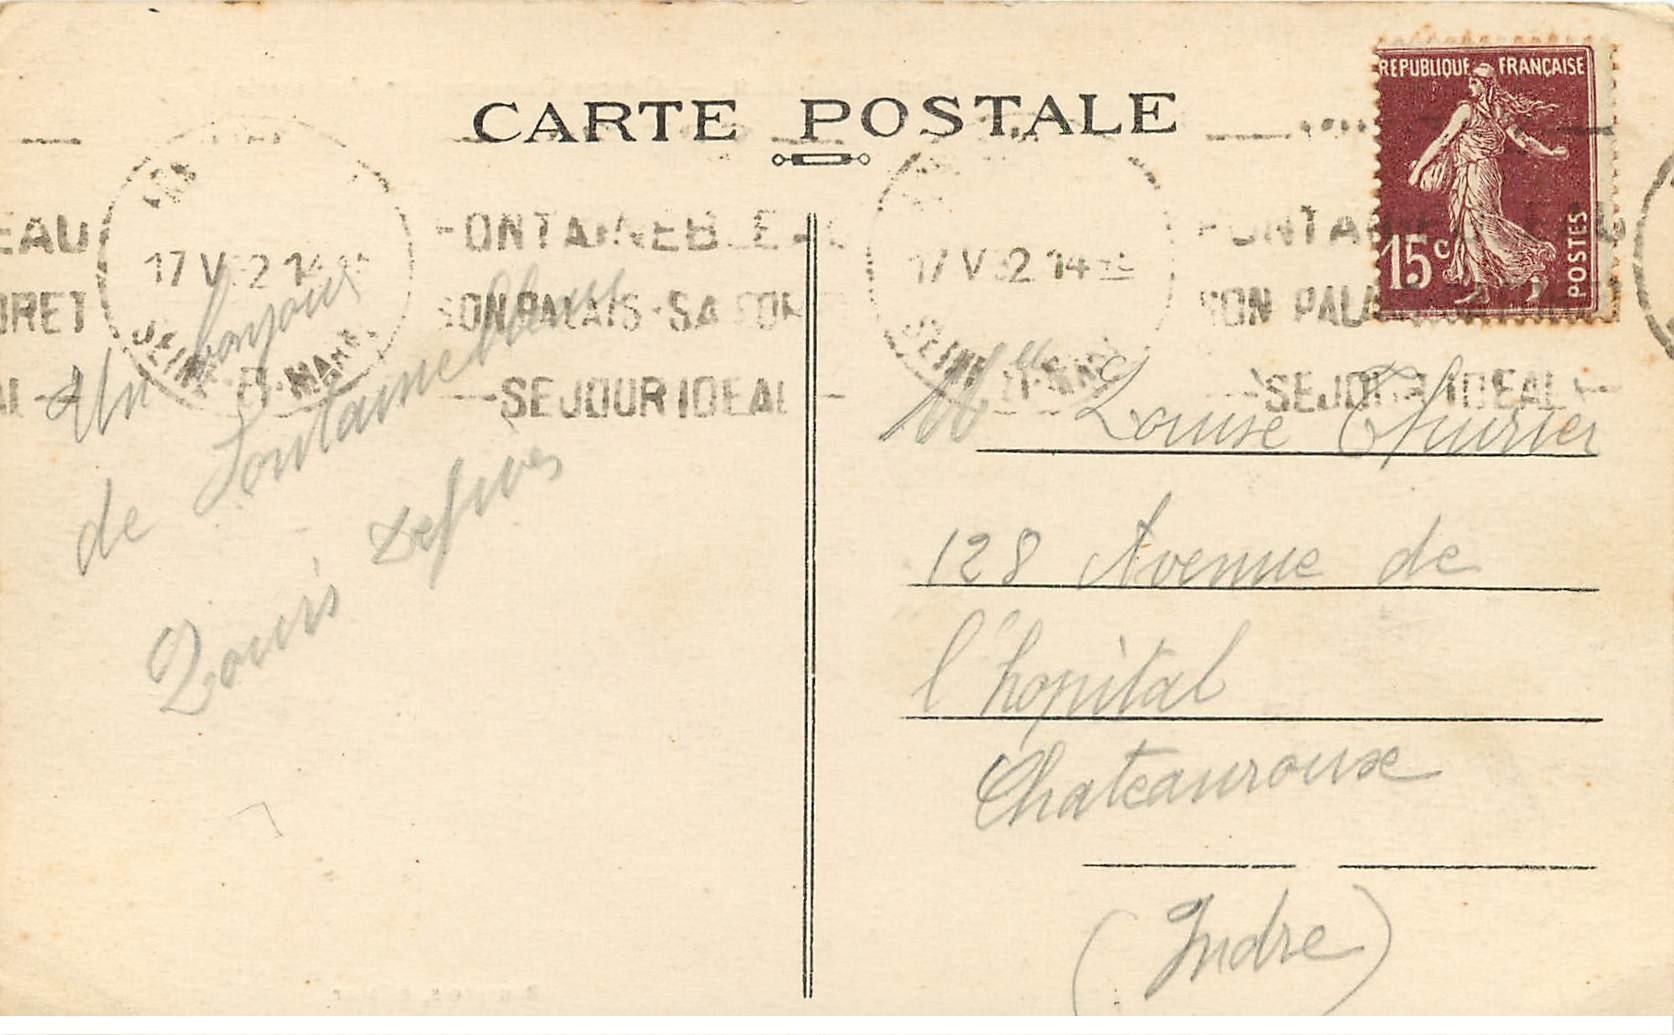 CARTE POSTALE
REPUBLIQUE FRANÇAISE
15c
POSTES
EAU
ORET
AL
17 V 32 14
SEINE-ET-MARNE
FONTAINEBLEAU
SON PALAIS-SA FORET
SEJOUR IDEAL
17 V 32 14
SEINE-ET-MARNE
FONTAINEBLEAU
SON PALAIS
SEJOUR IDEAL
Un bonjour
de Fontainebleau
Louis
Mlle Louise Thurier
128 Avenue de
l'hopital
Chateauroux
(Indre)